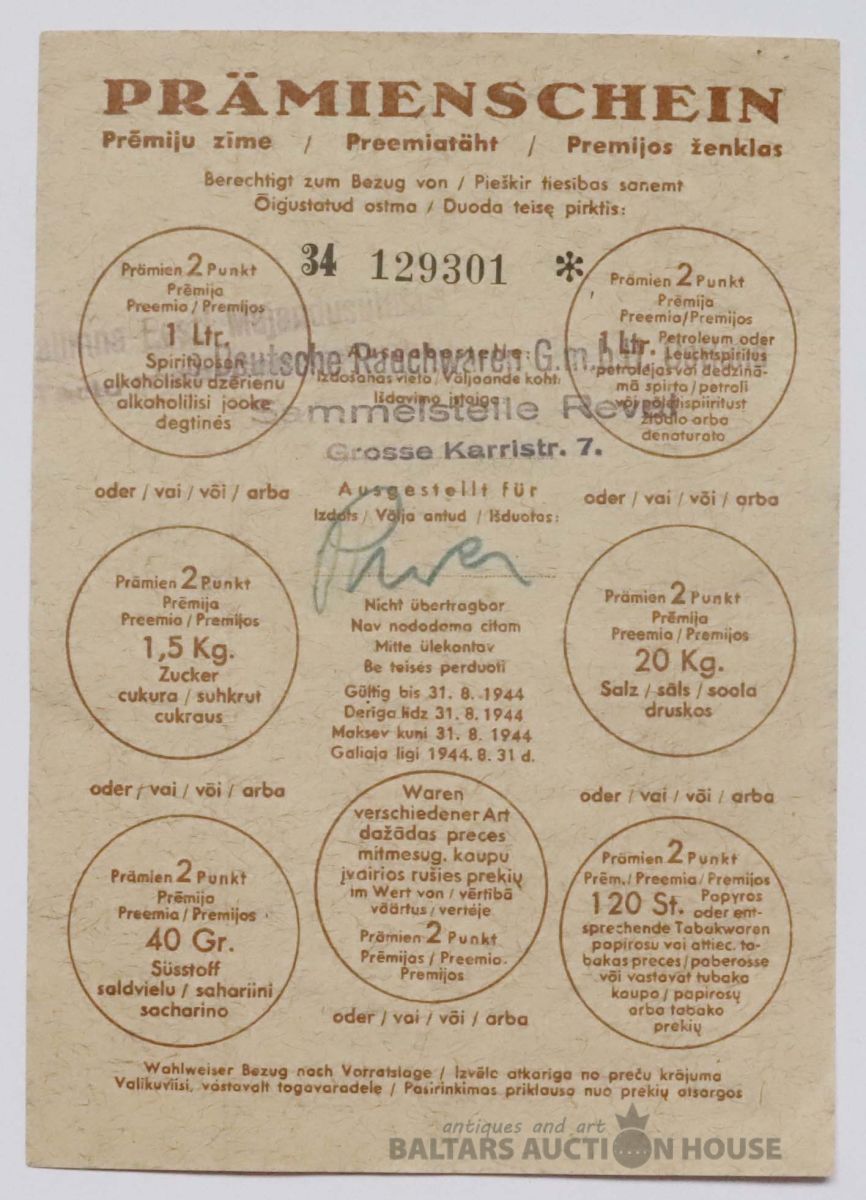 PRÄMIENSCHEIN
Prēmiju zīme / Preemiatäht / Premijos ženklas
Berechtigt zum Bezug von / Pieškir tiesības saņemt
Õigustatud ostma / Duoda teisę pirktis:
34 129301 *
Prämien 2 Punkt
Prēmija
Preemio / Premijos
1 Ltr.
Spirituosen
alkoholisku dzērienu
alkoholilisi jooke
degtinės
Prämien 2 Punkt
Prēmija
Preemia/Premijos
1 Ltr. Petroleum oder
Leuchtspiritus
petrolejas vai dedzinā-
mā spirta / petroli
või põletispiiritust
žibalo arba
denaturato
Ausgabestelle:
Izdošanas vieta / Väljaande koht:
Išdavimo įstaiga
Deutsche Rauchwaren G.m.b.H.
Sammelstelle Reval
Grosse Karristr. 7.
oder / vai / või / arba
Ausgestellt für
Izdots / Välja antud / Išduotas:
oder / vai / või / arba
Prämien 2 Punkt
Prēmija
Preemia / Premijos
1,5 Kg.
Zucker
cukura / suhkrut
cukraus
Nicht übertragbar
Nav nododama citam
Mitte ülekantav
Be teisės perduoti
Gültig bis 31. 8. 1944
Derīga līdz 31. 8. 1944
Maksev kuni 31. 8. 1944
Galioja ligi 1944. 8. 31 d.
Prämien 2 Punkt
Prēmija
Preemia / Premijos
20 Kg.
Salz / sāls / soola
druskos
oder / vai / või / arba
oder / vai / või / arba
Prämien 2 Punkt
Prēmija
Preemia / Premijos
40 Gr.
Süsstoff
saldvielu / sahariini
sacharino
Waren
verschiedener Art
dažādas preces
mitmesug. kaupu
įvairios rušies prekių
im Wert von / vērtībā
väärtus / vertėje
Prämien 2 Punkt
Prēmijas / Preemio.
Premijos
Prämien 2 Punkt
Prēm. / Preemia / Premijos
120 St. Papyros
oder ent-
sprechende Tabakwaren
papirosu vai attiec. ta-
bakas preces / paberosse
või vastavat tubaka
kaupa / papirosų
arba tabako
prekių
oder / vai / või / arba
Wahlweiser Bezug nach Vorratslage / Izvēle atkarīga no preču krājuma
Valikuviisi, vastavalt tagavaradele / Pasirinkimas priklauso nuo prekių atsargos
antiques and art
BALTARS AUCTION HOUSE